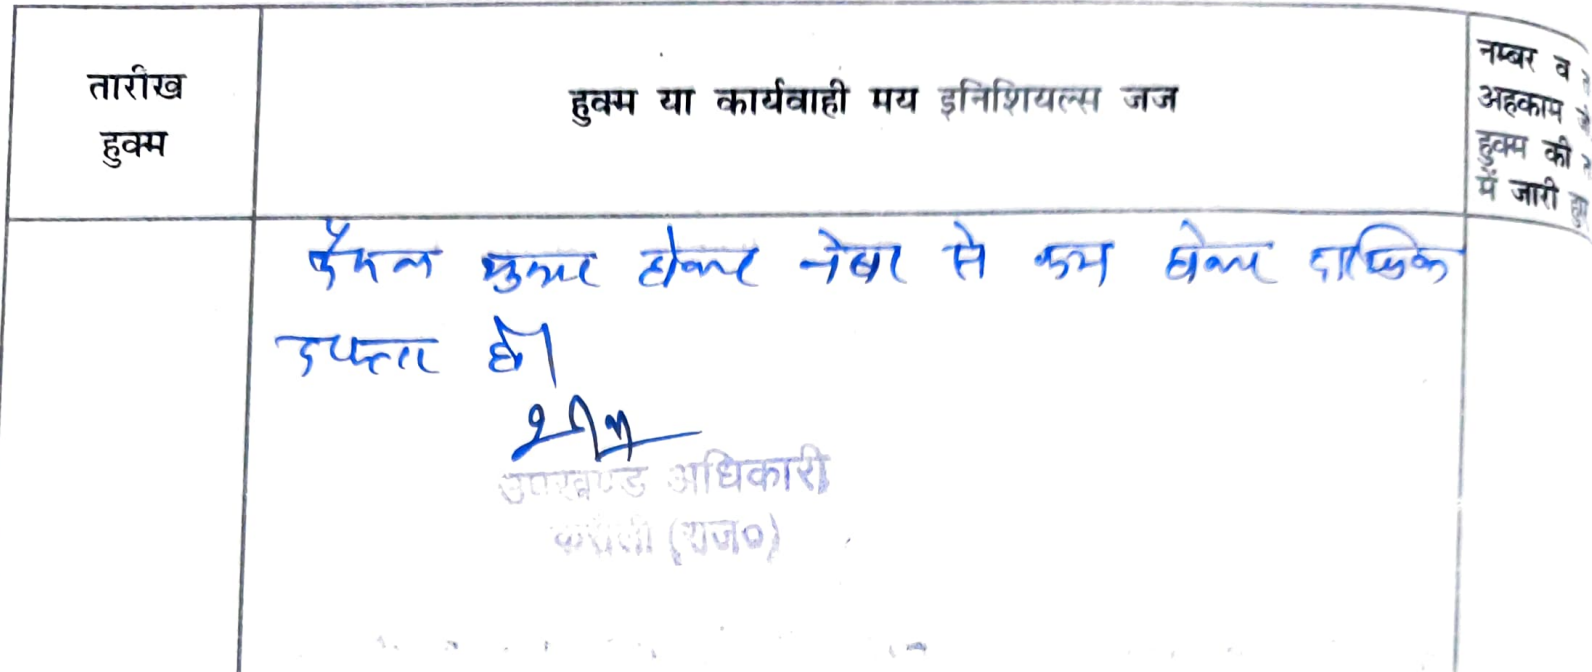 तारीख
हुक्म
हुक्म या कार्यवाही मय इनिशियल्स जज
नम्बर व
अहकाम
हुक्म की
में जारी
फैसल शुमार होकर नंबर से कम होकर दाखिल
दफ्तर हो।
उपखण्ड अधिकारी
करौली (राज०)